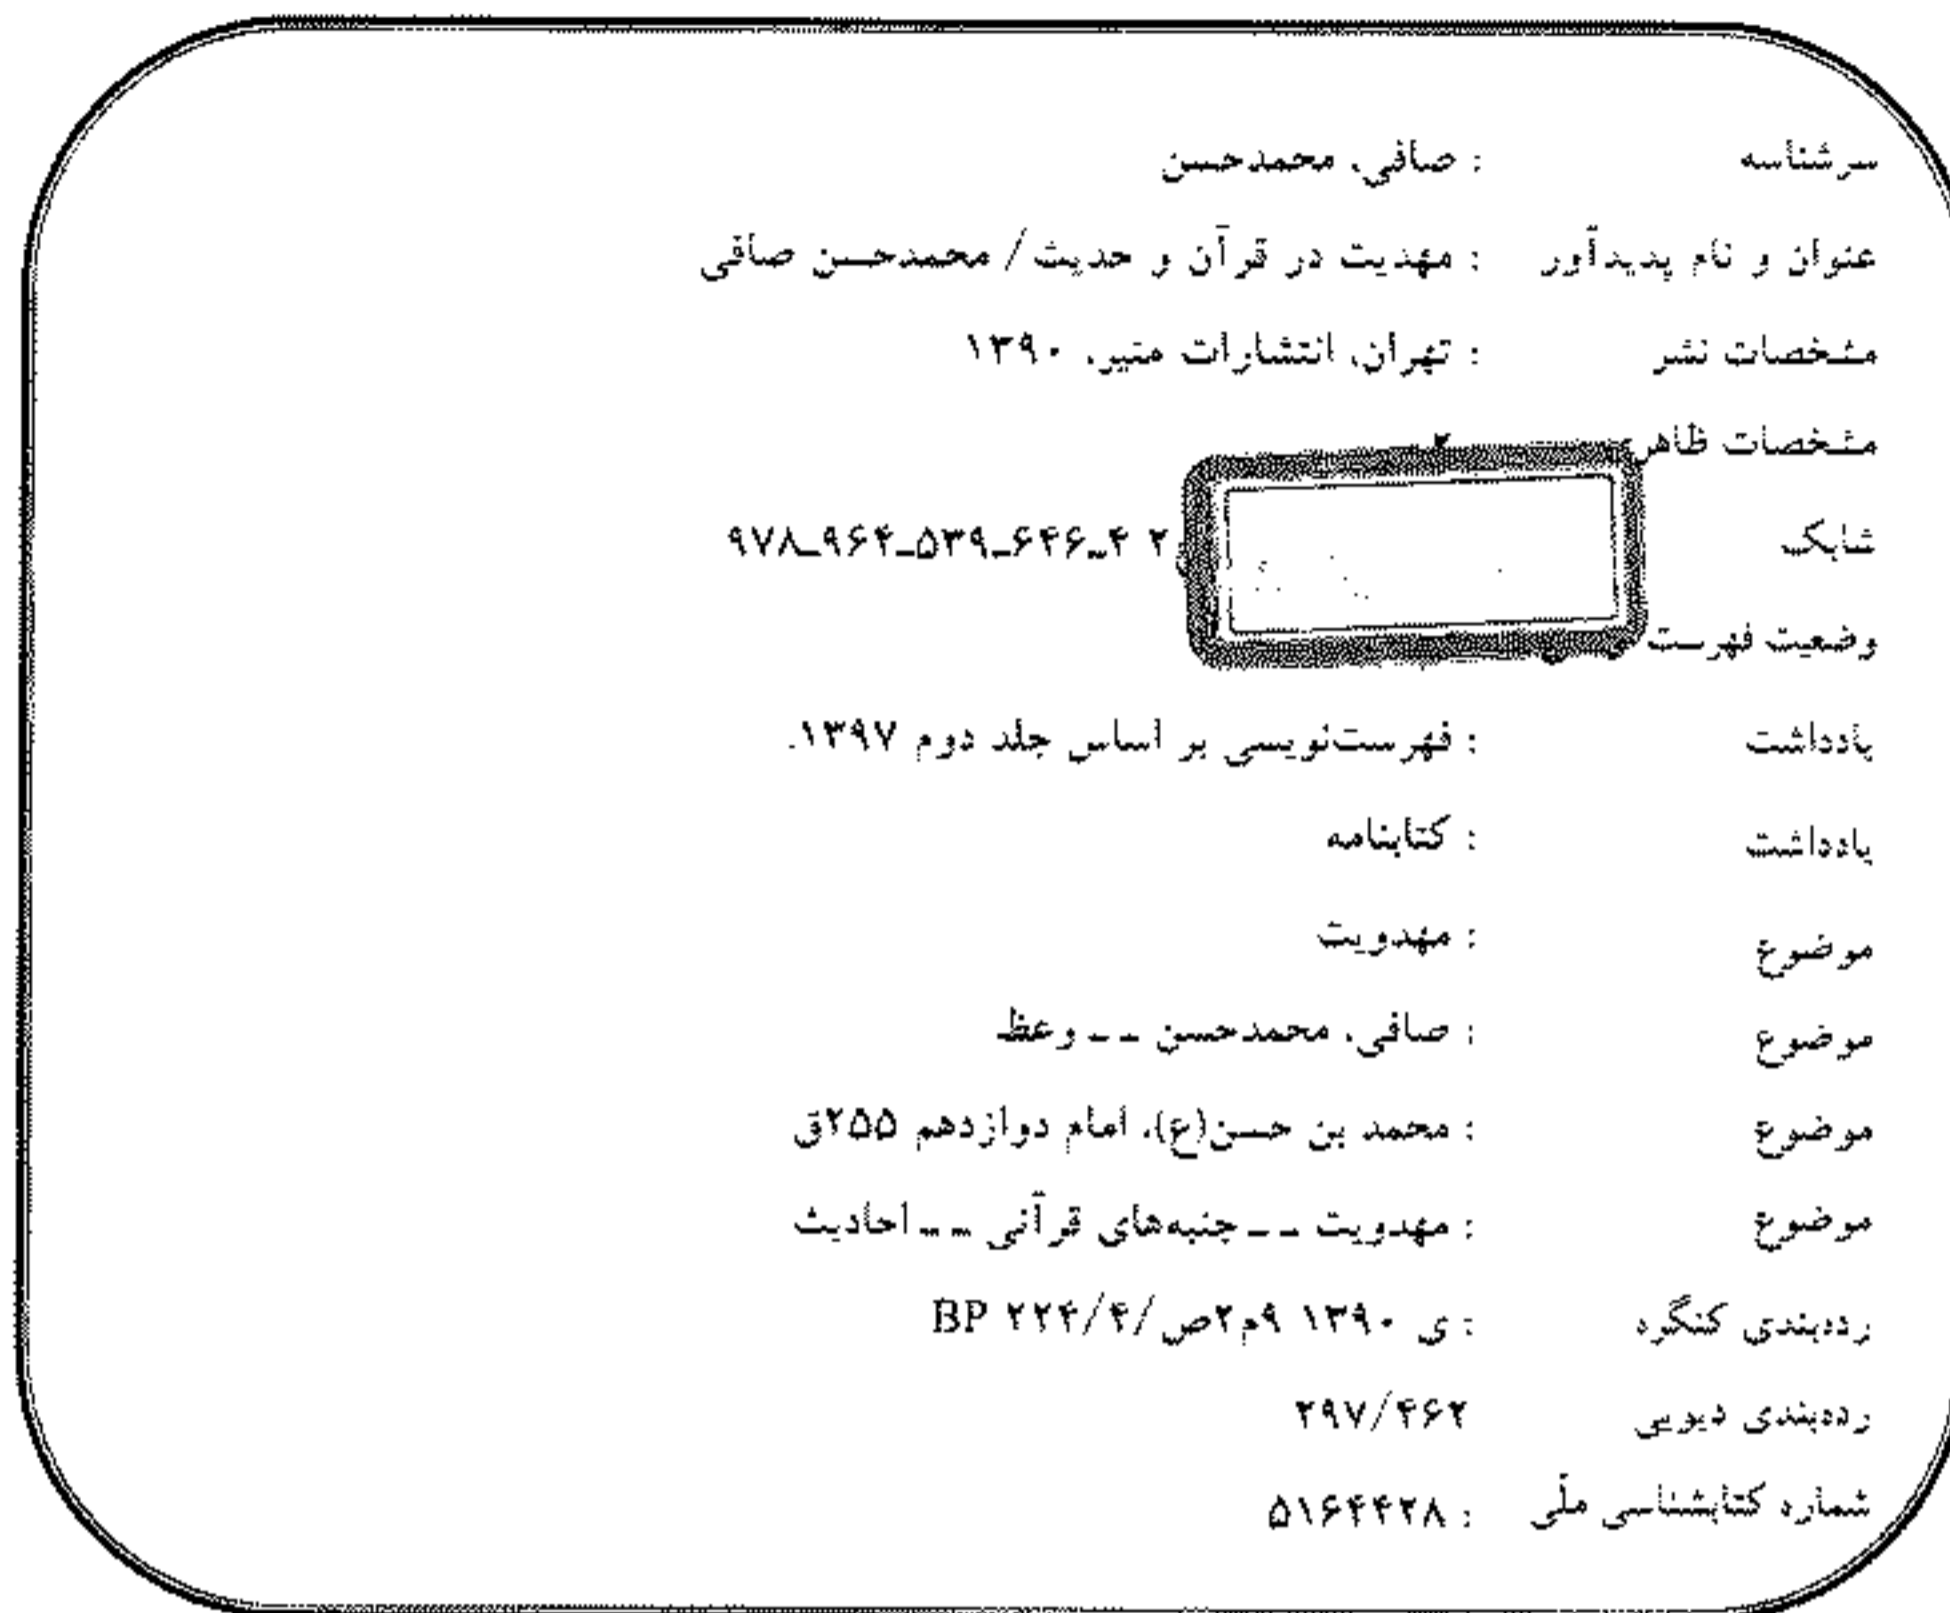 سرشناسه : صافی، محمدحسن
عنوان و نام پدیدآور : مهدیت در قرآن و حدیث/ محمدحسن صافی
مشخصات نشر : تهران، انتشارات منیر، ۱۳۹۰
مشخصات ظاهری
شابک ۲ ۹۷۸ـ۹۶۴ـ۵۳۹ـ۶۴۶ـ۴
وضعیت فهرست
یادداشت : فهرست‌نویسی بر اساس جلد دوم ۱۳۹۷.
یادداشت : کتابنامه
موضوع : مهدویت
موضوع : صافی، محمدحسن ـ ـ وعظ
موضوع : محمد بن حسن(ع)، امام دوازدهم ۲۵۵ق
موضوع : مهدویت ـ ـ جنبه‌های قرآنی ـ ـ احادیث
رده‌بندی کنگره : ی ۱۳۹۰ ۹م۲ص/۲۲۴/۴ BP
رده‌بندی دیویی ۲۹۷/۴۶۲
شماره کتابشناسی ملّی : ۵۱۶۴۴۲۸